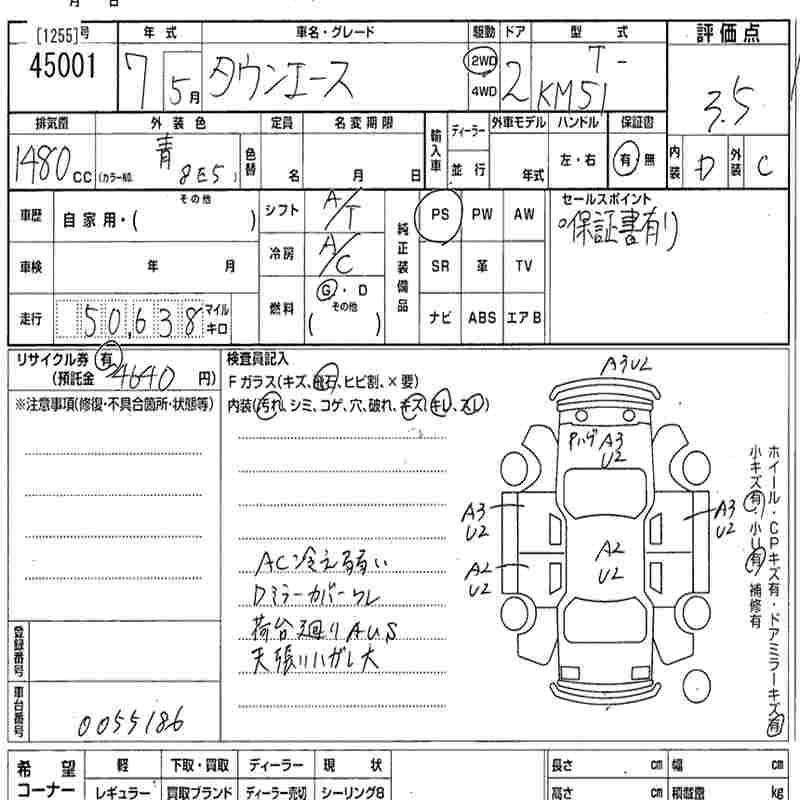 月 日
[1255]号
年 式 車名・グレード 駆動 ドア 型 式 評 価 点
45001 7 5月 タウンエース 2WD 4WD 2 T- KM51 3.5
排気量 外 装 色 定員 名 変 期 限 輸入車 ディーラー 外車モデル ハンドル 保証書 内装 D 外装 C
1480cc 青 (カラーNO. 8E5) 色替 名 月 日 並 行 年式 左・右 有・無
車歴 自 家 用・( その他 ) シフト A/T 純正装備品 PS PW AW セールスポイント
保証書有り
車検 年 月 冷房 A/C SR 革 TV
走行 50,638 マイル キロ 燃料 G・D その他 ( ) ナビ ABS エアB
リサイクル券 有 (預託金 4640 円)
※注意事項(修復・不具合箇所・状態等)
検査員記入
Fガラス(キズ、飛石、ヒビ割、×要)
内装(汚れ、シミ、コゲ、穴、破れ、キズ、キレ、スレ)
AC冷え弱い
Dミラーカバーワレ
荷台廻りAUS
天張りハガレ大
A3U2
Pハゲ A3
U2
A3
U2
A3
U2
A2
U2
A2
U2
ホイール・CPキズ有・ドアミラーキズ有
小キズ有・小U有・補修有
登録番号
車台番号 0055186
希 望 コーナー 軽 下取・買取 ディーラー 現 状 長さ cm 幅 cm
レギュラー 買取ブランド ディーラー売切 シーリング8 高さ cm 積載量 kg